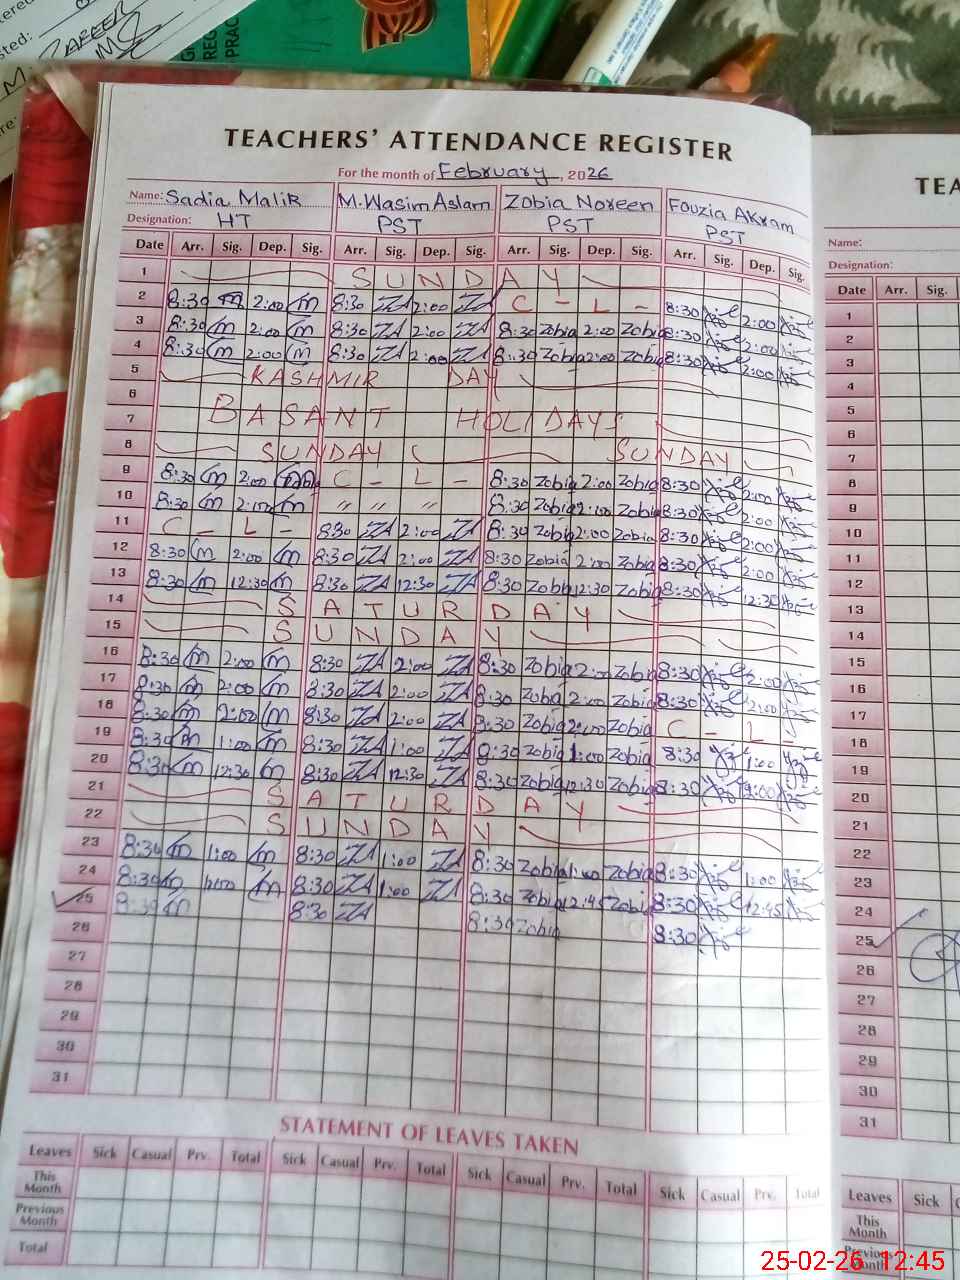 ZAREER
M.
sted:
TEACHERS' ATTENDANCE REGISTER
For the month of February, 2026
Name: Sadia Malik M. Wasim Aslam Zobia Noreen Fouzia Akram
Designation: HT PST PST PST
Date Arr. Sig. Dep. Sig. Arr. Sig. Dep. Sig. Arr. Sig. Dep. Sig. Arr. Sig. Dep. Sig.
1 SUNDAY
2 8:30 m 2:00 m 8:30 ZA 2:00 ZA C - L - 8:30 2:00
3 8:30 m 2:00 m 8:30 ZA 2:00 ZA 8:30 Zobia 2:00 Zobia 8:30 2:00
4 8:30 m 2:00 m 8:30 ZA 2:00 ZA 8:30 Zobia 2:00 Zobia 8:30 2:00
5 KASHMIR DAY
6
7 BASANT HOLIDAYS
8 SUNDAY SUNDAY
9 8:30 m 2:00 m C - L - 8:30 Zobia 2:00 Zobia 8:30 2:00
10 8:30 m 2:00 m " " " 8:30 Zobia 2:00 Zobia 8:30 2:00
11 C - L - 8:30 ZA 2:00 ZA 8:30 Zobia 2:00 Zobia 8:30 2:00
12 8:30 m 2:00 m 8:30 ZA 2:00 ZA 8:30 Zobia 2:00 Zobia 8:30 2:00
13 8:30 m 12:30 m 8:30 ZA 12:30 ZA 8:30 Zobia 12:30 Zobia 8:30 12:30
14 SATURDAY
15 SUNDAY
16 8:30 m 2:00 m 8:30 ZA 2:00 ZA 8:30 Zobia 2:00 Zobia 8:30 2:00
17 8:30 m 2:00 m 8:30 ZA 2:00 ZA 8:30 Zobia 2:00 Zobia 8:30 2:00
18 8:30 m 2:00 m 8:30 ZA 2:00 ZA 8:30 Zobia 2:00 Zobia C - L
19 8:30 m 1:00 m 8:30 ZA 1:00 ZA 8:30 Zobia 1:00 Zobia 8:30 1:00
20 8:30 m 12:30 m 8:30 ZA 12:30 ZA 8:30 Zobia 12:30 Zobia 8:30
21 SATURDAY
22 SUNDAY
23 8:30 m 1:00 m 8:30 ZA 1:00 ZA 8:30 Zobia 1:00 Zobia 8:30 1:00
24 8:30 m m 8:30 ZA 1:00 ZA 8:30 Zobia 12:45 Zobia 8:30 12:45
25 8:30 m 8:30 ZA 8:30 Zobia 8:30
26
27
28
29
30
31
STATEMENT OF LEAVES TAKEN
Leaves Sick Casual Prv. Total Sick Casual Prv. Total Sick Casual Prv. Total Sick Casual Prv. Total
This Month
Previous Month
Total
TEA
Name:
Designation:
Date Arr. Sig.
1
2
3
4
5
6
7
8
9
10
11
12
13
14
15
16
17
18
19
20
21
22
23
24
25
26
27
28
29
30
31
Leaves Sick
This Month
Previous Month
25-02-26 12:45